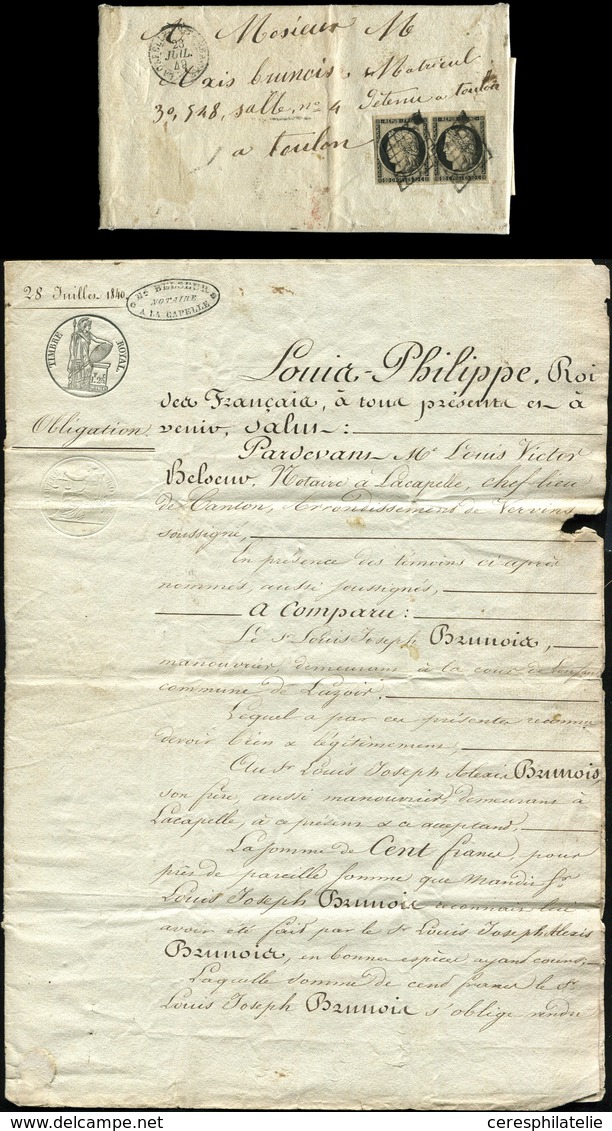 A Mosieur M
Alexis brunois Matricul
30,548, salle, no 4 Détenu a toulon
a toulon
23
JUIL.
49
REPUB. FRANC.
REPUB. FRANC.
28 Juillet 1840.
Me BELSEUR
NOTAIRE
A LA CAPELLE
TIMBRE ROYAL
Louis-Philippe, Roi
des Français, à tous présents et à
venir, Salut:
Obligation.
Pardevant Me Louis Victor
Belseur, Notaire à Lacapelle, chef-lieu
de Canton, Arrondissement de Vervins
soussigné,
En présence des témoins ci après
nommés, aussi soussignés,
A Comparu:
Le Sr Louis Joseph Brunois,
manouvrier, demeurant à la cour de
commune de Luzoir.
Lequel a par ces présentes reconnu
devoir bien & légitimement,
Au Sr Louis Joseph Alexis Brunois,
son frère, aussi manouvrier, demeurant à
Lacapelle, à ce présent & ce acceptant,
La somme de Cent francs, pour
prêt de pareille somme que Mondit Sr
Louis Joseph Brunois reconnait lui
avoir été fait par le Sr Louis Joseph Alexis
Brunois, en bonnes espèces ayant cours,
Laquelle somme de cent francs le Sr
Louis Joseph Brunois s'oblige rendre
delcampe.net
ceresphilatelie